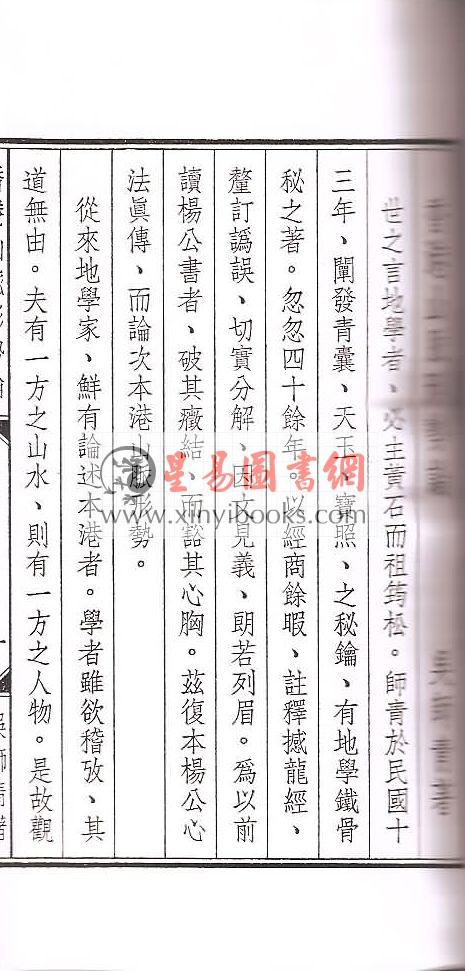 世之言地學者、必主黃石而祖筠松。師青於民國十
三年、闡發青囊、天玉、寶照、之秘鑰、有地學鐵骨
秘之著。忽忽四十餘年。以經商餘暇、註釋撼龍經、
釐訂譌誤、切實分解、因文見義、朗若列眉。爲以前
讀楊公書者、破其癥結、而豁其心胸。茲復本楊公心
法眞傳、而論次本港山脈形勢。
從來地學家、鮮有論述本港者。學者雖欲稽攷、其
道無由。夫有一方之山水、則有一方之人物。是故觀
星易圖書網
www.xinyibooks.com